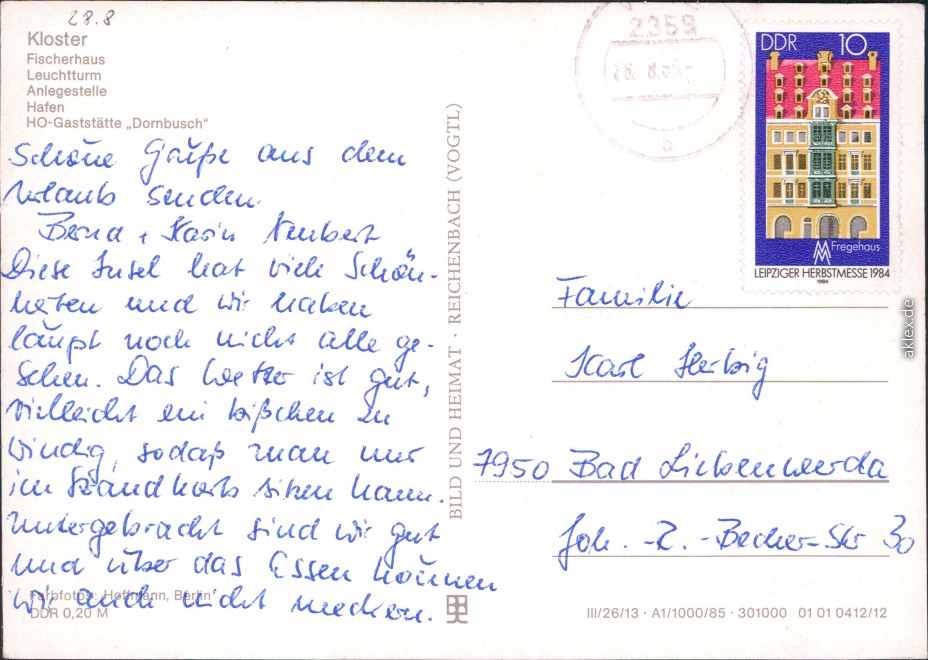 28.8
Kloster
Fischerhaus
Leuchtturm
Anlegestelle
Hafen
HO-Gaststätte „Dornbusch“
Schöne Grüße aus dem
Urlaub senden
Bernd + Karin Neubert
Diese Insel hat viele Schön-
heiten und wir haben
längst noch nicht alle ge-
sehen. Das Wetter ist gut,
vielleicht ein bißchen zu
windig, sodaß man nur
im Strandkorb sitzen kann.
Untergebracht sind wir gut
und über das Essen können
wir auch nicht meckern.
Farbfotos: Hoffmann, Berlin
DDR 0,20 M
BILD UND HEIMAT · REICHENBACH (VOGTL)
2359
b
DDR 10
Fregehaus
LEIPZIGER HERBSTMESSE 1984
1984
Familie
Karl Herbig
7950 Bad Liebenwerda
Joh.-R.-Becher-Str 30
III/26/13 · A1/1000/85 · 301000 01 01 0412/12
aklex.de